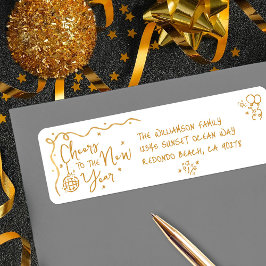 Cheers
to the New
Year
THE WILLIAMSON FAMILY
12345 SUNSET OCEAN WAY
REDONDO BEACH, CA 90178